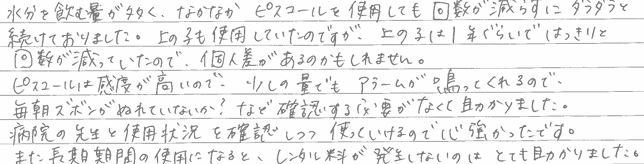 水分を飲む量が多く、なかなか ピスコールを使用しても 回数が減らずに ダラダラと
続けておりました。上の子も使用していたのですが、上の子は1年ぐらいではっきりと
回数が減っていたので、個人差があるのかもしれません。
ピスコールは感度が高いので、少しの量でも アラームが鳴ってくれるので、
毎朝ズボンがぬれていないか?など確認する必要がなくて助かりました。
病院の先生と使用状況を確認しつつ使っていけるので心強かったです。
また長期期間の使用になると、レンタル料が発生しないのはとても助かりました。